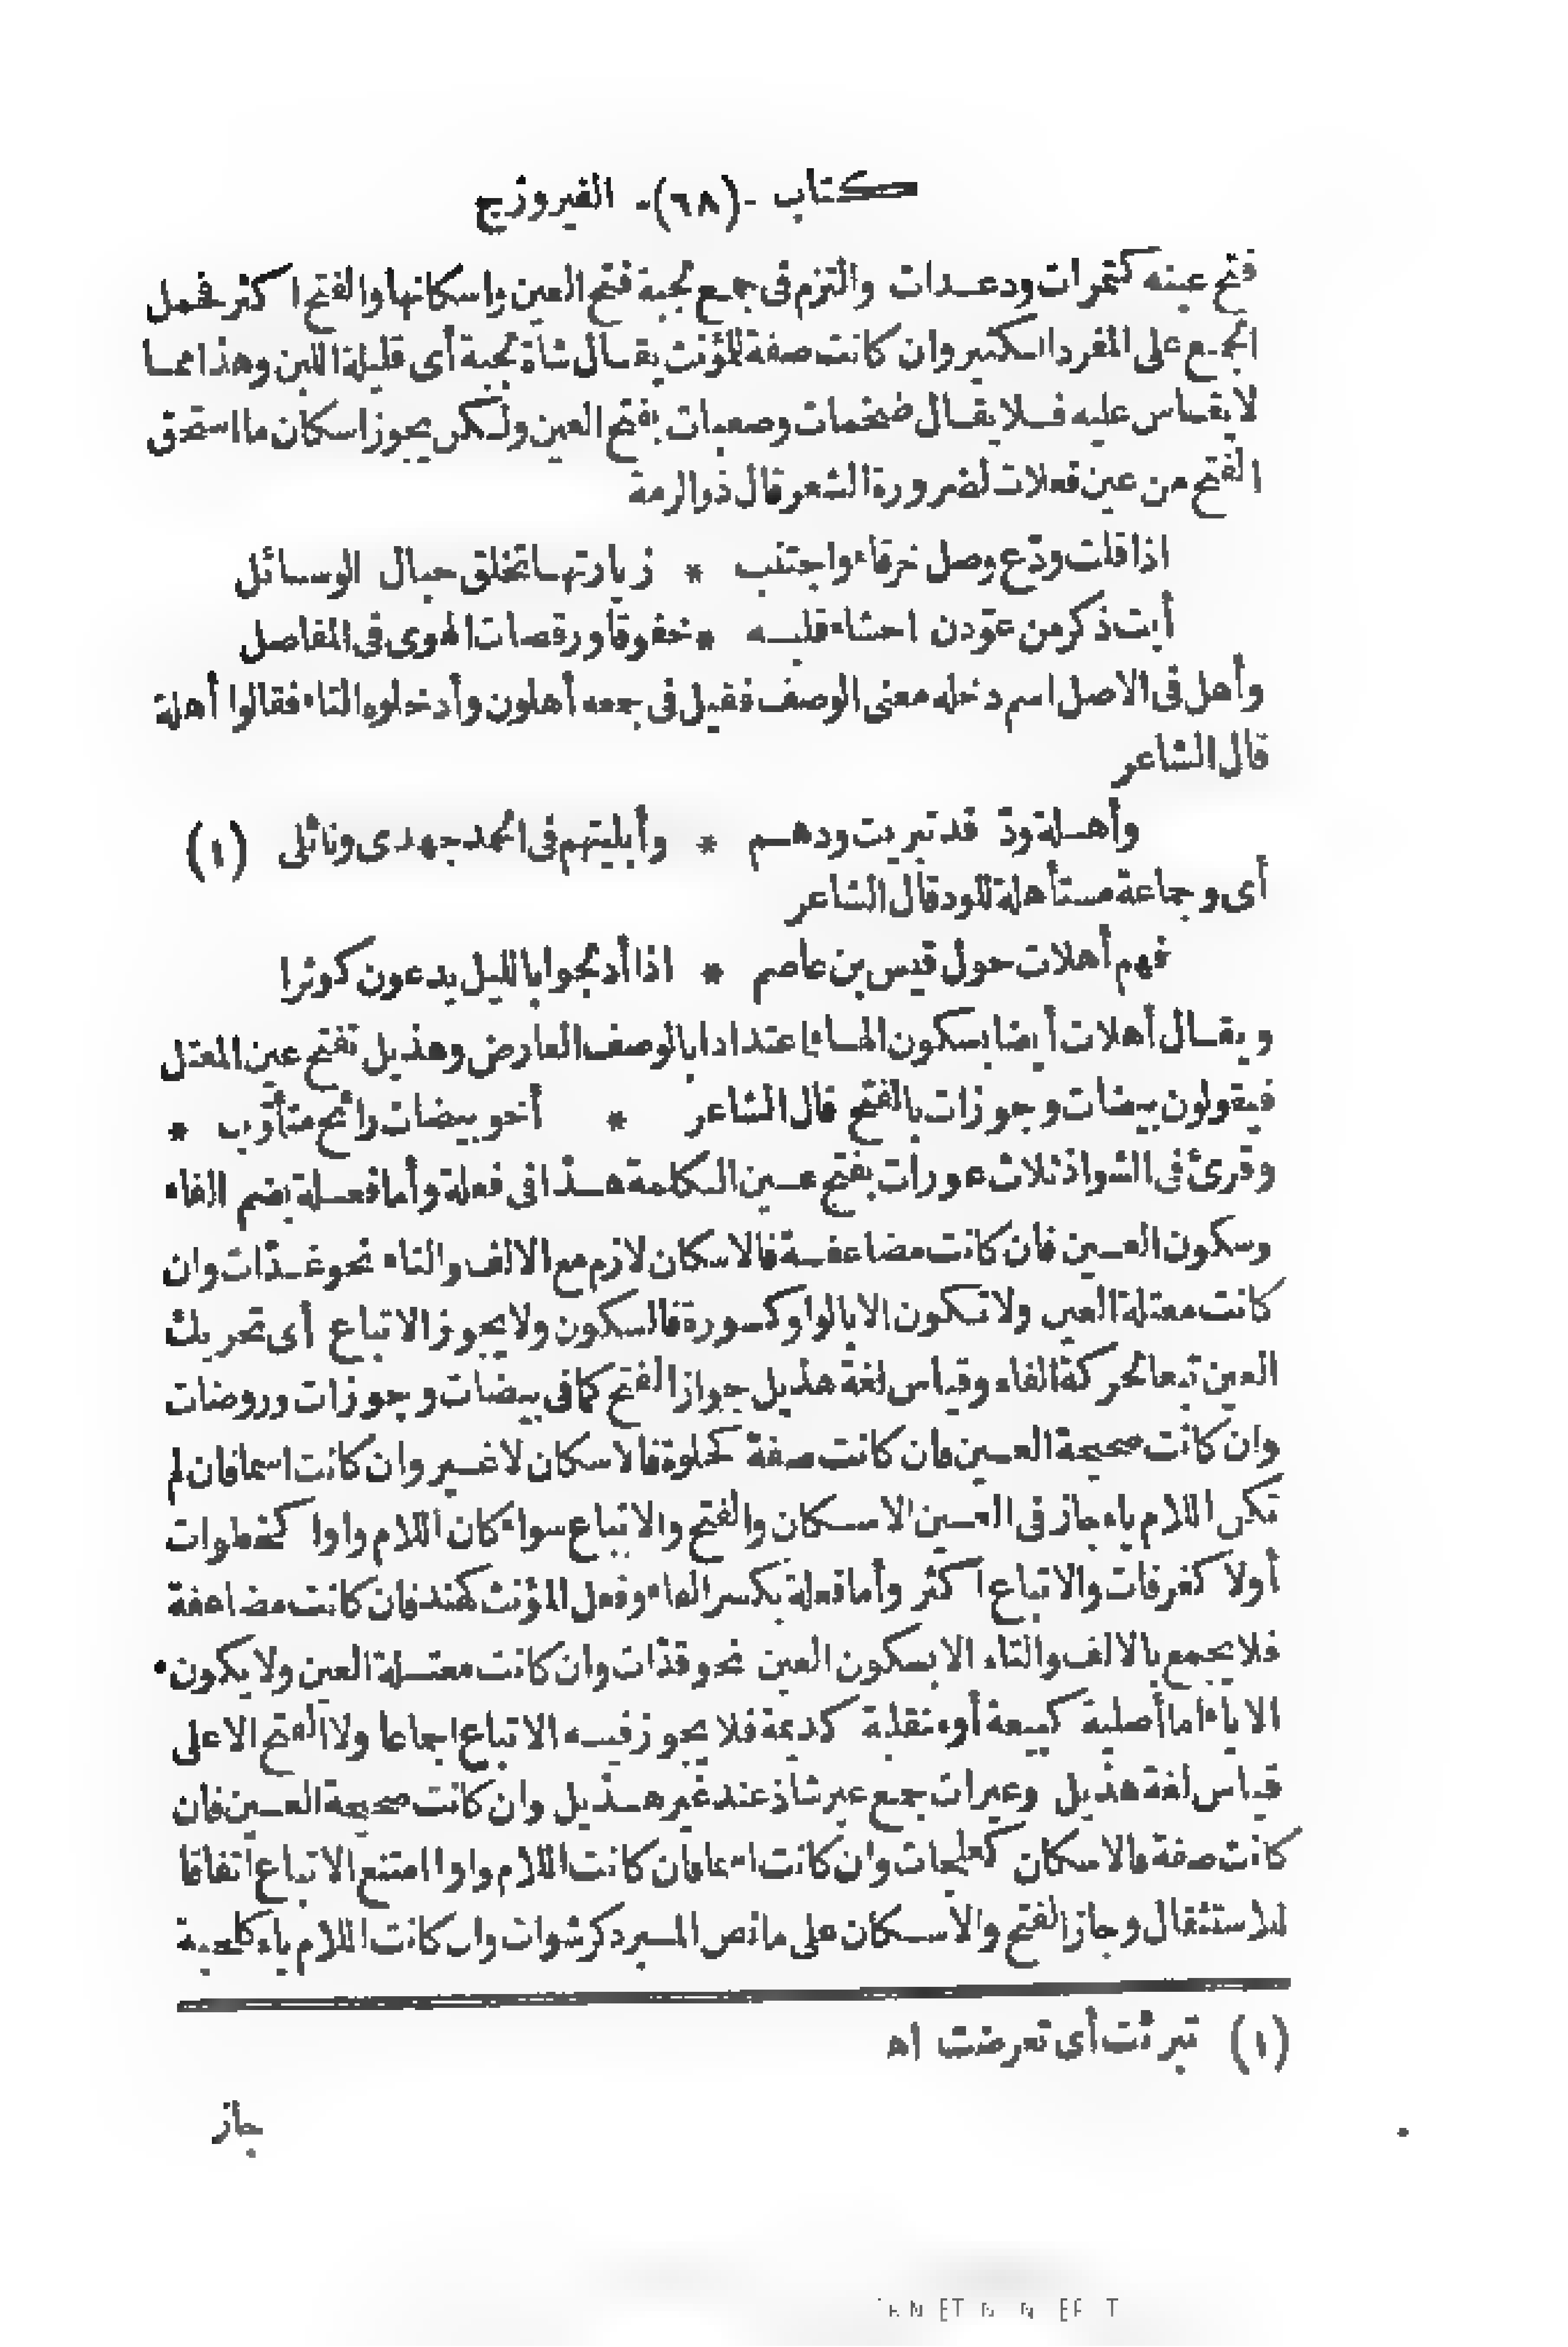 كتاب -(٦٨)- الفيروزج
فتح عينه كتمرات ودعدات والتزم فى جمع لجبة فتح العين واسكانها والفتح اكثر فحمل
الجمع على المفرد الكثير وان كانت صفة للمؤنث يقال شاة لجبة أى قليلة اللبن وهذا مما
لا يقاس عليه فلا يقال ضخمات وصعبات بفتح العين ولكن يجوز اسكان ما استحق
الفتح من عين فعلات لضرورة الشعر قال ذو الرمة
اذا قلت ودّع وصل خرقاء واجتنب * زيارتها تخلق حبال الوسائل
أبت ذكر من عوّدن احشاء قلبه * خفوقا ورقصات الهوى فى المفاصل
وأهل فى الاصل اسم دخله معنى الوصف فقيل فى جمعه أهلون وأدخلوه التاء فقالوا أهلة
قال الشاعر
وأهلة ودّ قد تبريت ودهم * وأبليتهم فى الحمد جهدى ونائلى (١)
أى وجماعة مستأهلة للود قال الشاعر
فهم أهلات حول قيس بن عاصم * اذا أدلجوا بالليل يدعون كوثرا
ويقال أهلات أيضا بسكون الهاء اعتدادا بالوصف العارض وهذيل تفتح عين المعتل
فيقولون بيضات وجوزات بالفتح قال الشاعر * أخو بيضات رائح متأوّب *
وقرئ فى الشواذ ثلاث عورات بفتح عين الكلمة هذا فى فعلة وأما فعلة بضم الفاء
وسكون العين فان كانت مضاعفة فالاسكان لازم مع الالف والتاء نحو غدّات وان
كانت معتلة العين ولا تكون الا بالواو كسورة فالسكون ولا يجوز الاتباع أى تحريك
العين تبعا لحركة الفاء وقياس لغة هذيل جواز الفتح كما فى بيضات وجوزات وروضات
وان كانت صحيحة العين فان كانت صفة كحلوة فالاسكان لا غير وان كانت اسما فان لم
تكن اللام ياء جاز فى العين الاسكان والفتح والاتباع سواء كان اللام واوا كخطوات
أولا كغرفات والاتباع اكثر وأما فعلة بكسر الفاء وفعل المؤنث كهند فان كانت مضاعفة
فلا يجمع بالالف والتاء الا بسكون العين نحو قدّات وان كانت معتلة العين ولا يكون
الا ياء اما أصلية كبيعة أو منقلبة كديمة فلا يجوز فيه الاتباع اجماعا ولا الفتح الا على
قياس لغة هذيل وعيرات جمع عير شاذ عند غير هذيل وان كانت صحيحة العين فان
كانت صفة فالاسكان كعلجات وان كانت اسما فان كانت اللام واوا امتنع الاتباع اتفاقا
للاستثقال وجاز الفتح والاسكان على ما نص المبرد كرشوات وان كانت اللام ياء كلحية
(١) تبرئت أى تعرضت اه
جاز